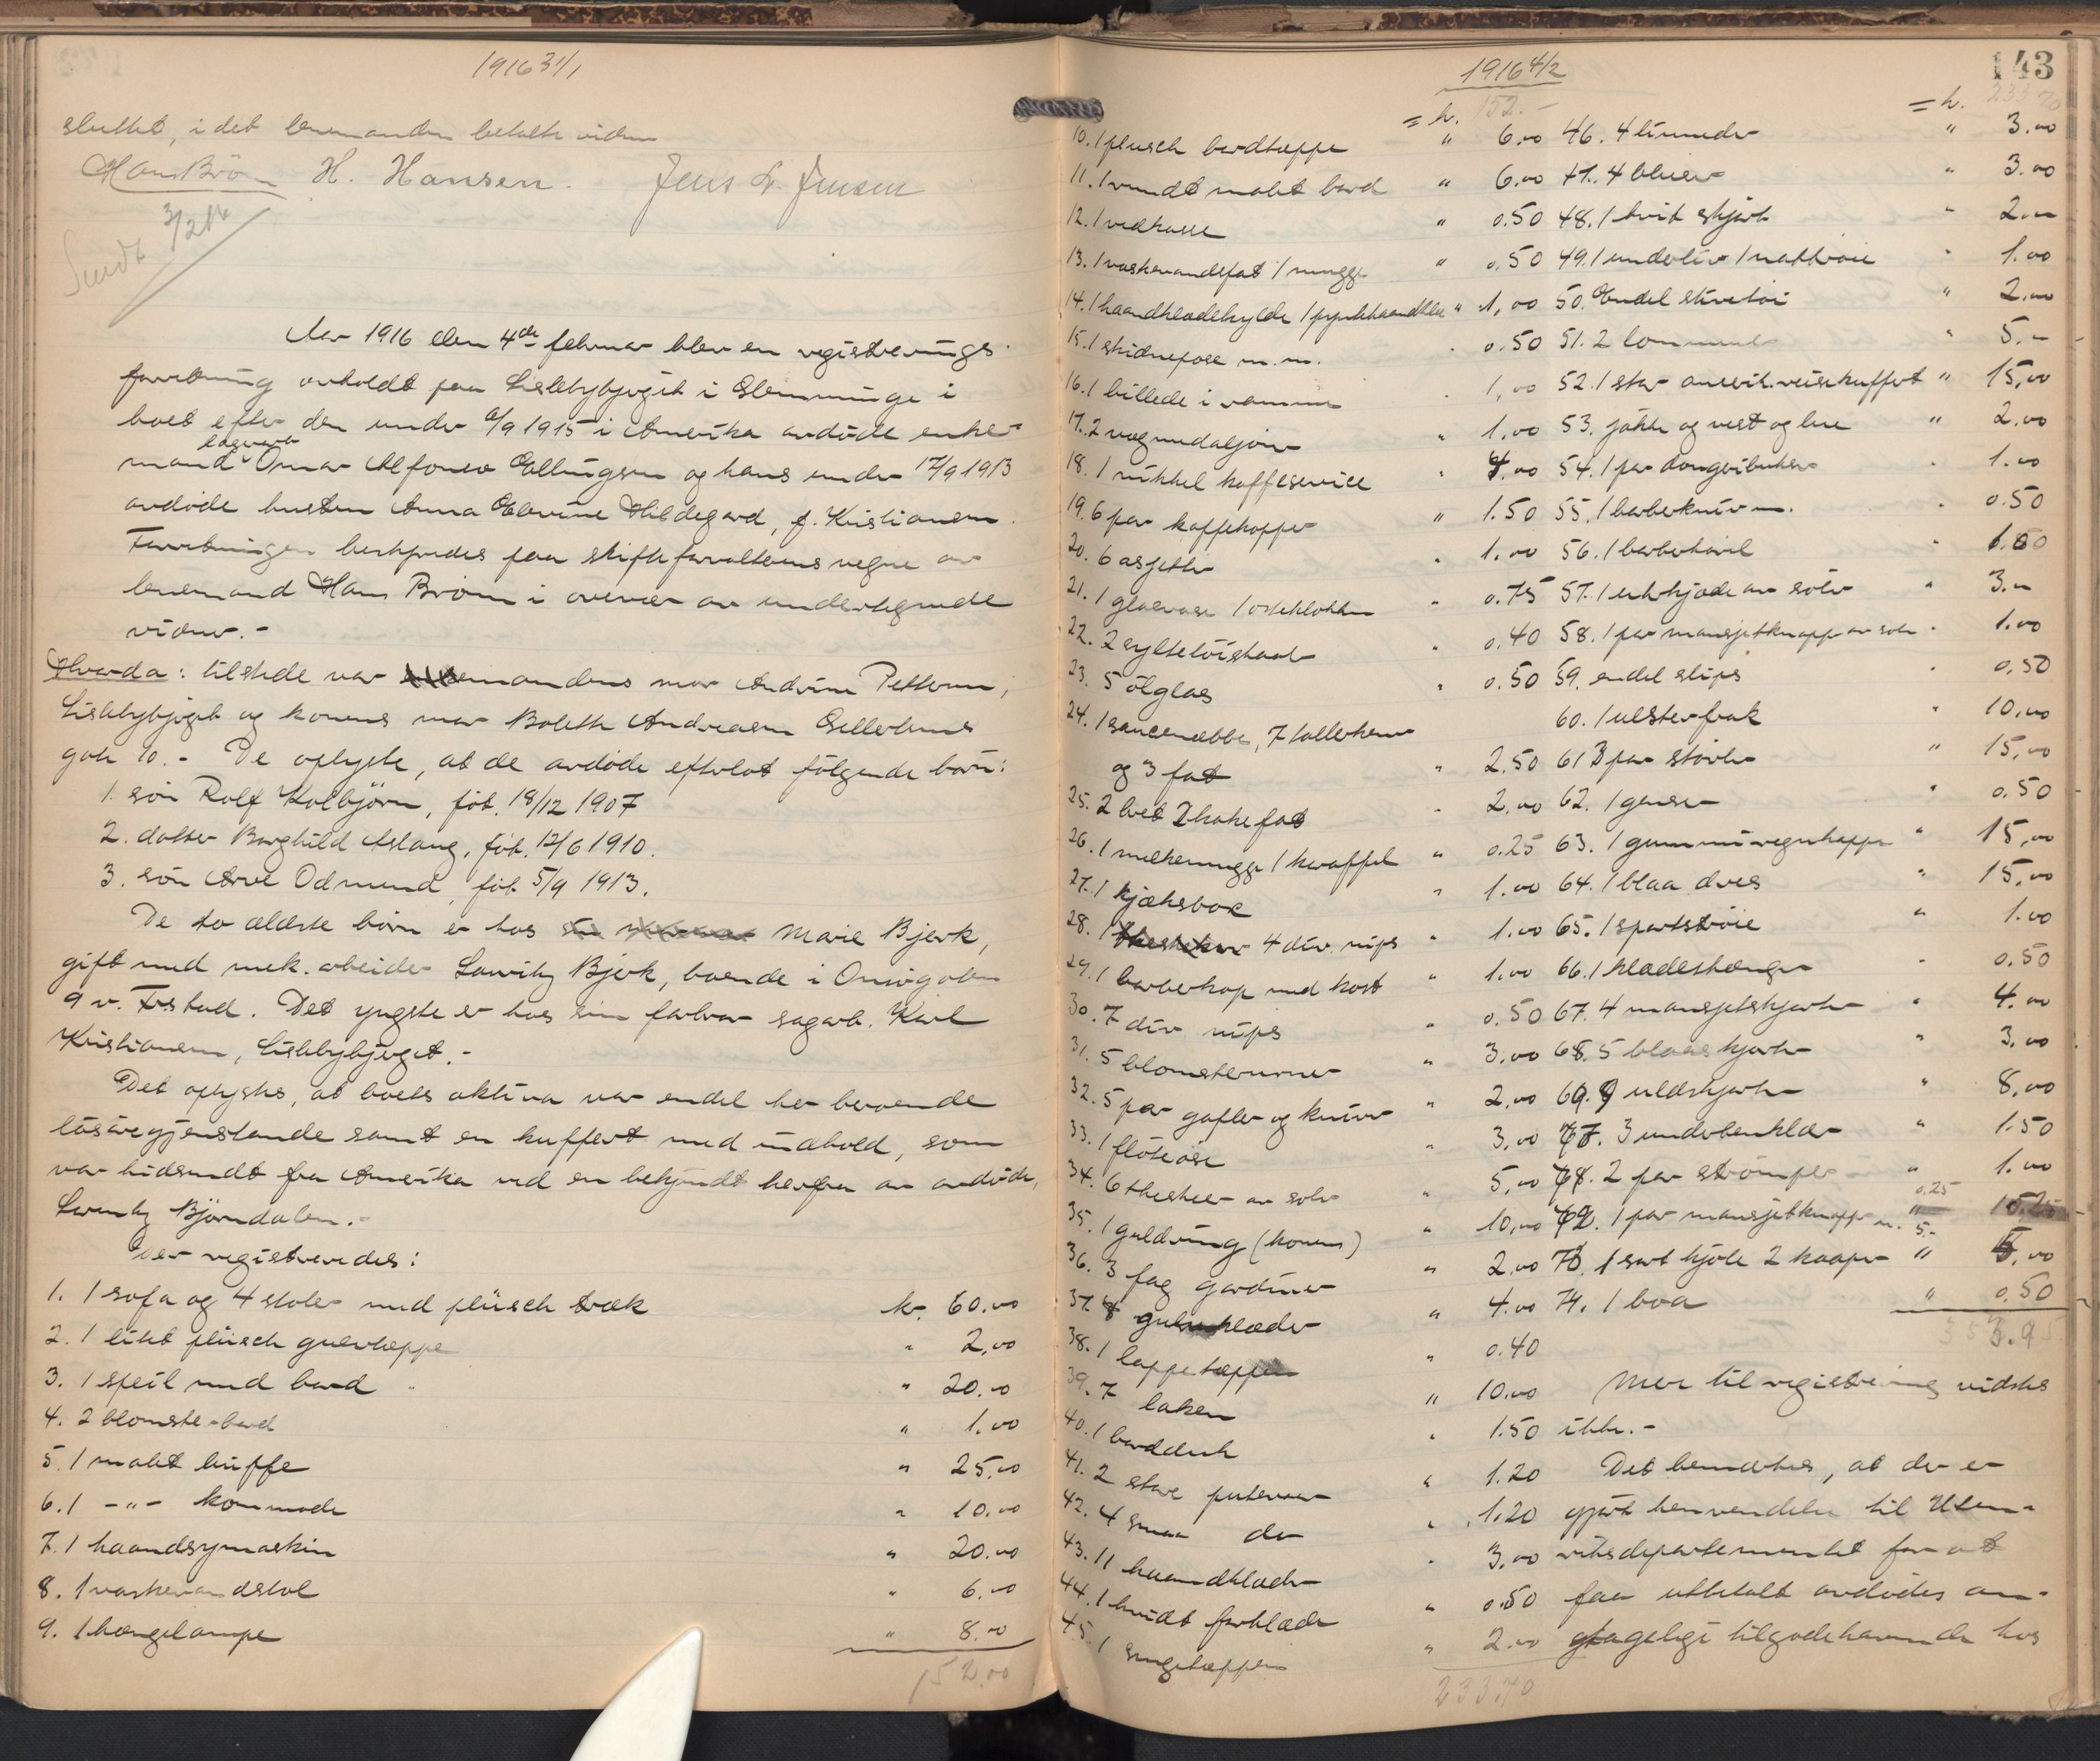 1916 31/1
sluttet, i det lensmanden betalte vidnene
Hans Bröm H. Hansen. Jens L. Jensen
Sendt 3/2 16
Aar 1916 den 4de februar blev en registrerings-
forretning avholdt paa Lislebyfjeget i Glemminge i
boet efter den under 6/9 1915 i Amerika avdöde enke-
mand Omar Alfonso Ellingsen og hans under 17/9 1913
avdöde hustru Anna Elevine Hildegard, f. Kristiansen.
Forretningen bestyredes paa skifteforvalterens vegne av
lensmand Hans Bröm i overvær av undertegnede
vidner.-
Hvorda: tilstede var mandens mor Andrine Pettersen,
Lislebyfjeget og konens mor Bolette Andreasen Gellertsens
gate 10.- De oplyste, at de avdöde efterlot fölgende barn:
1. sön Rolf Kolbjörn, föt. 18/12 1907
2. datter Borghild Aslaug, föt. 12/6 1910.
3. sön Arve Odmund, föt. 5/9 1913.
De to ældste börn er hos Marie Bjerk,
gift med mek. arbeider Lauritz Bjerk, boende i Onsögaten
9 v. Fr.stad. Det yngste er hos sin farbror sagarb. Karl
Kristiansen, Lislebyfjeget.-
Det oplystes, at boets aktiva var endel her beroende
lösöregjenstande samt en kuffert med indhold, som
var hidsendt fra Amerika ved en bekjendt herfra av avdöde,
Lauritz Björndalen.-
Der registreredes:
1. 1 sofa og 4 stoler med plüsch træk kr. 60.00
2. 1 litet plüsch gulvteppe " 2,00
3. 1 speil med bord " 20.00
4. 2 blomsterbord " 1.00
5. 1 malt büffe " 25,00
6. 1 -"- kommode " 10.00
7. 1 haandsymaskin " 20.00
8. 1 vaskevandstol " 6.00
9. 1 hængelampe " 8.00
152.00
1916 4/2
143
= kr. 152.-
10. 1 plusch bordtæppe " 6.00
11. 1 rundt malt bord " 6.00
12. 1 vedkasse " 0.50
13. 1 vaskevandsfat 1 mugge " 0.50
14. 1 haandklædehylde 1 pyntehaandklæ " 1,00
15. 1 skidnepose m.m. 0.50
16. 1 billede i ramme 1,00
17. 2 vægmedaljoner " 1.00
18. 1 nikkel kaffeservice " 4.00
19. 6 par kaffekopper " 1.50
20. 6 asjetter " 1.00
21. 1 glasvase 1 osteklokke " 0.75
22. 2 syltetöiskaal " 0.40
23. 5 ölglas " 0.50
24. 1 saucenebbe, 7 tallerkener
og 3 fat " 2.50
25. 2 bret 2 kakefat " 2.00
26. 1 melkemugge 1 karaffel " 0.25
27. 1 kjæksbox " 1.00
28. 4 div. nips " 1.00
29. 1 barberkop med kost " 1.00
30. 7 div nips " 0.50
31. 5 blomsterurner " 3.00
32. 5 par gafler og kniver " 2,00
33. 1 flöteöse " 3,00
34. 6 theskeer av sölv " 5,00
35. 1 guldring (konens) " 10,00
36. 3 fag gardiner " 2.00
37. gulvklæder " 4.00
38. 1 lappetæppe " 0.40
39. 7 laken " 10.00
40. 1 bordduk " 1.50
41. 2 store putevaar " 1.20
42. 4 smaa do " 1.20
43. 11 haandklæder " 3.00
44. 1 hvidt forklæde " 0.50
45. 1 sengetæppe " 2.00
233.70
= kr. 233 70
46. 4 linneder " 3.00
47. 4 bluser " 3.00
48. 1 hvit skjört " 2.00
49. 1 underliv 1 nattröie " 1.00
50. Endel stivetöi " 2.00
51. 2 lommeur " 5.-
52. 1 stor amerik. reisekuffert " 15,00
53. jakke og vest og lue " 2.00
54. 1 par dongeributser " 1.00
55. 1 barberkniv m. " 0.50
56. 1 barberhövel "
57. 1 urkjæde av sölv " 3.-
58. 1 par mansjetknapper av sölv " 1.00
59. endel slips " 0.50
60. 1 ulsterfrak " 10,00
61 3 par stövler " 15,00
62. 1 genser " 0.50
63. 1 gummiregnkappe " 15,00
64. 1 blaa dres " 15,00
65. 1 sportströie " 1.00
66. 1 klædeshænger " 0.50
67. 4 mansjetskjorter " 4.00
68. 5 blaaskjorter " 3.00
69. 9 uldskjorter " 8,00
3 underbenklær " 1.50
2 par strömper " 1.00
72. 1 par mansjetknapper m. " 0.25
73. 1 sort kjole 2 kaaper " 5,00
74. 1 boa " 0.50
Mer til registrering vidstes
ikke.-
Det bemerkes, at der er
gjort henvendelse til Uten-
riksdepartementet for at
faa utbetalt avdödes an-
tagelige tilgodehavende hos